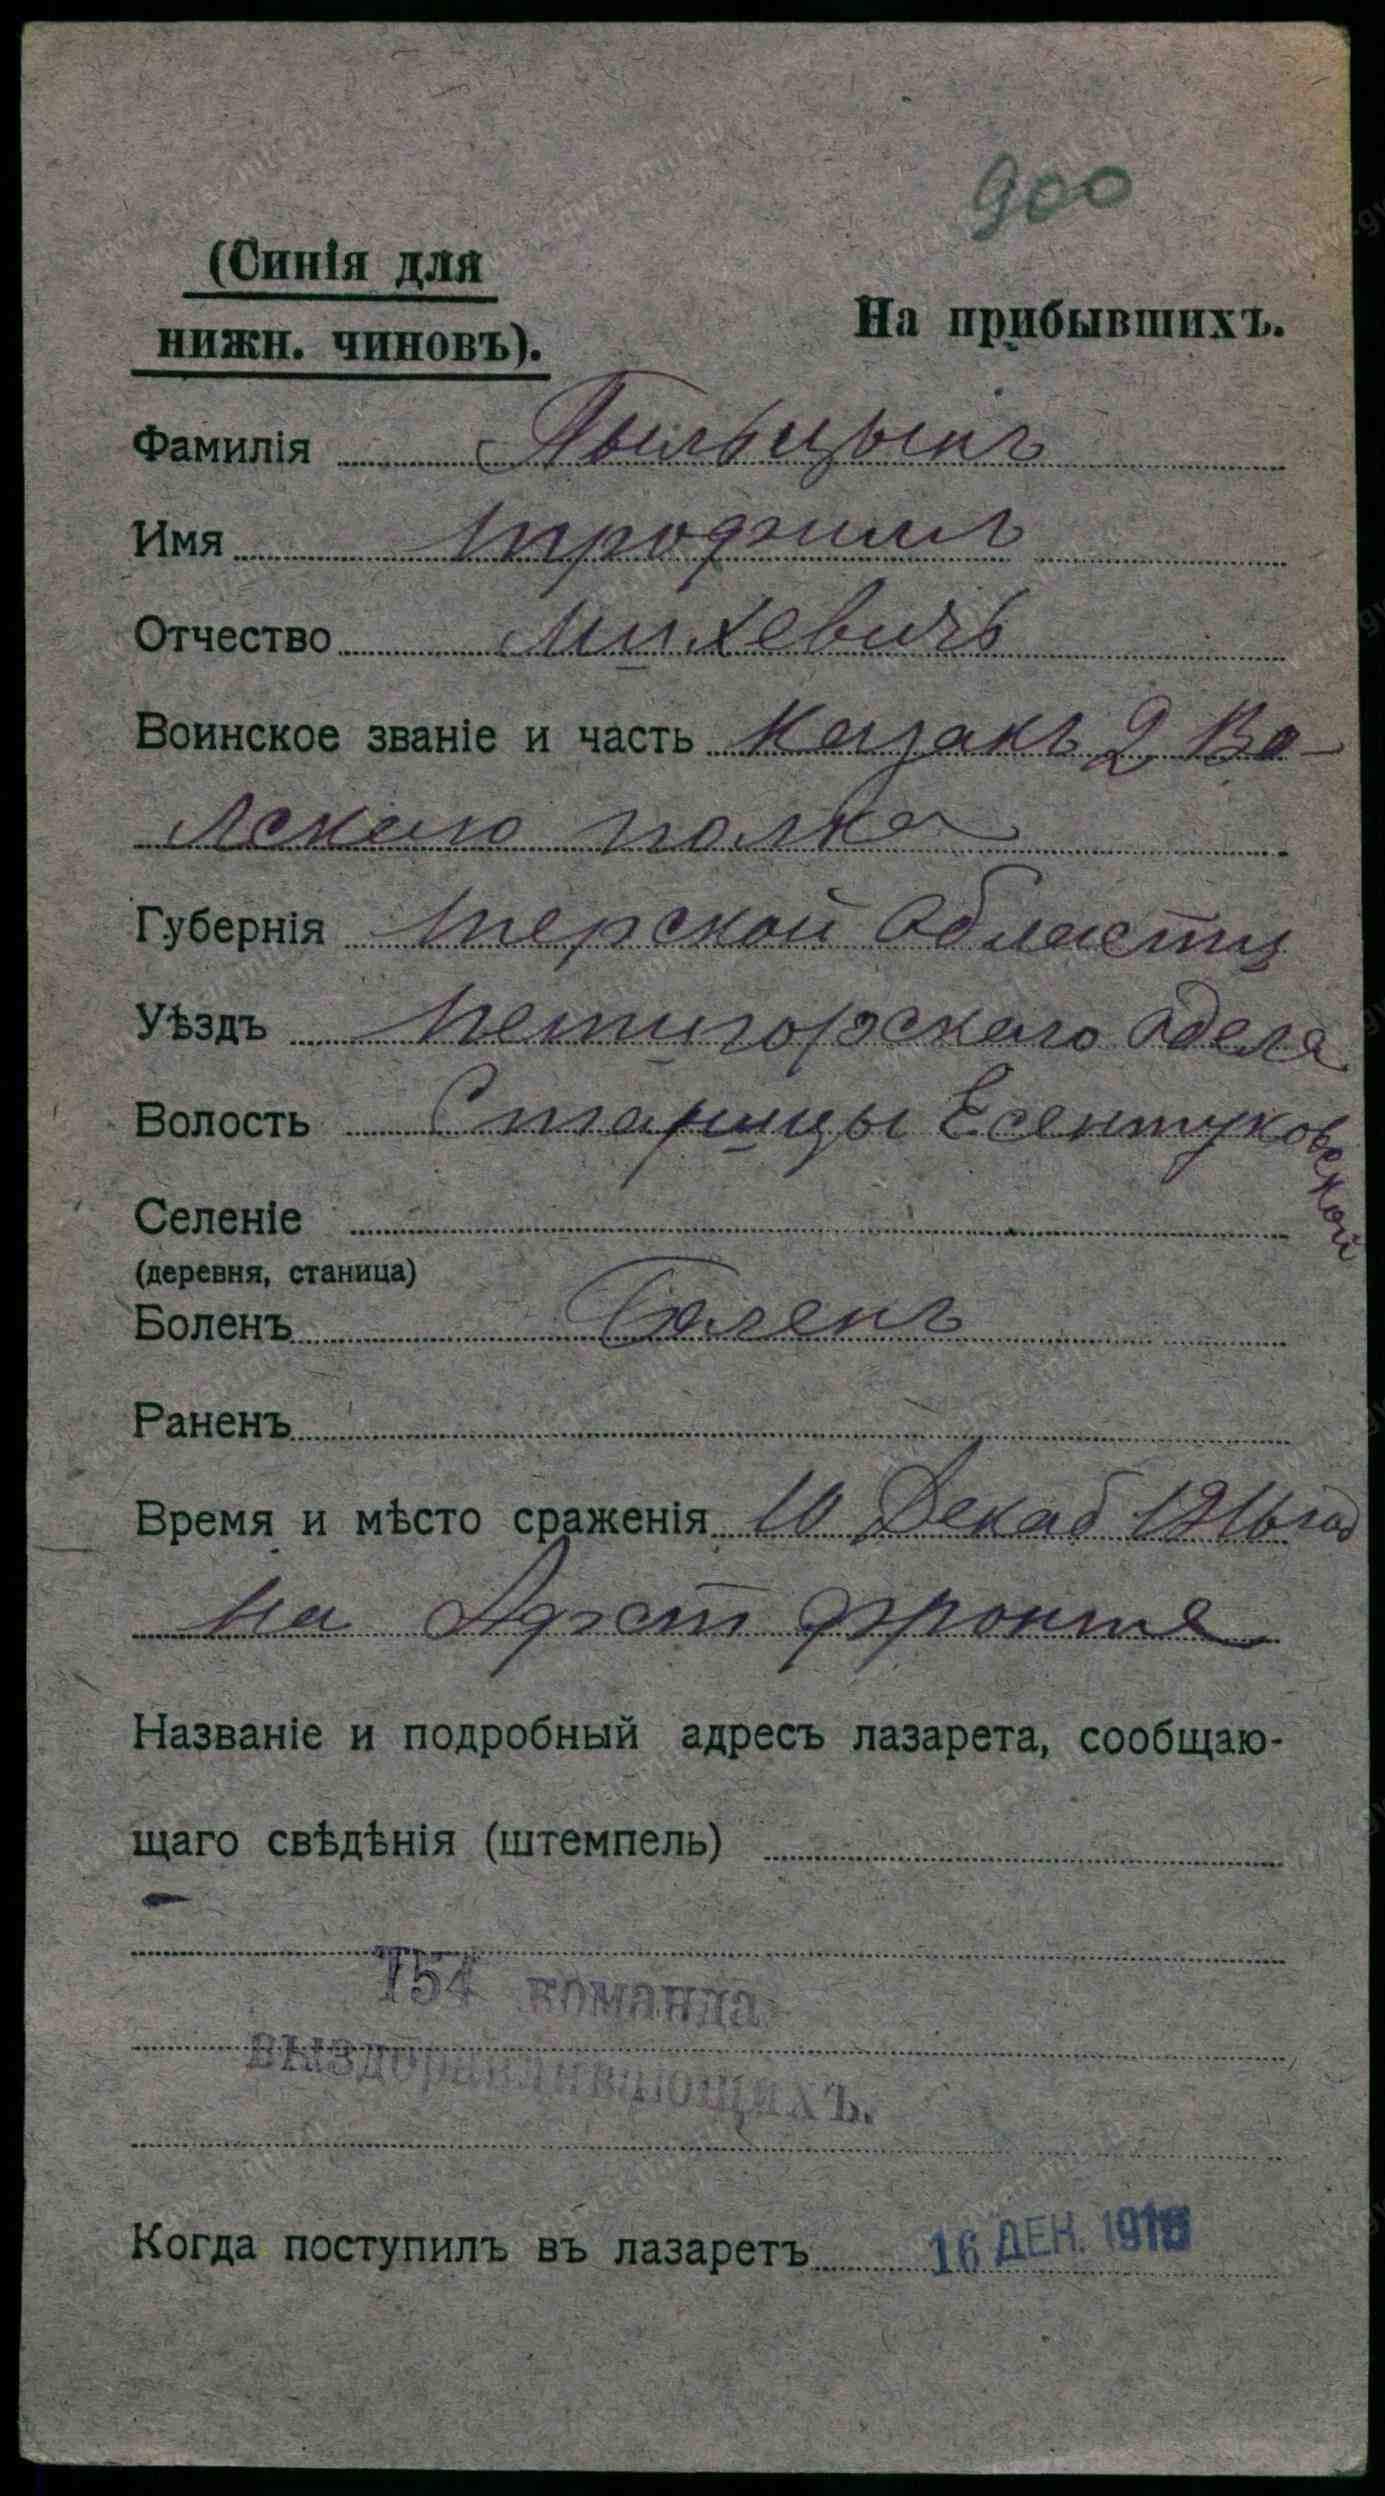 900
(Синія для
нижн. чиновъ).
На прибывшихъ.
Фамилія Пыльцынъ
Имя Трофимъ
Отчество Михевичъ
Воинское званіе и часть Казакъ 2 Во-
лскаго полка
Губернія Терской Области
Уѣздъ Петигорскаго Одела
Волость Станицы Есентуковской
Селеніе
(деревня, станица)
Боленъ Боленъ
Раненъ
Время и мѣсто сраженія 10 Декаб 1916 год
на фронте
Названіе и подробный адресъ лазарета, сообщаю-
щаго свѣдѣнія (штемпель)
154 команда
выздоравливающихъ.
Когда поступилъ въ лазаретъ 16 ДЕК. 1916